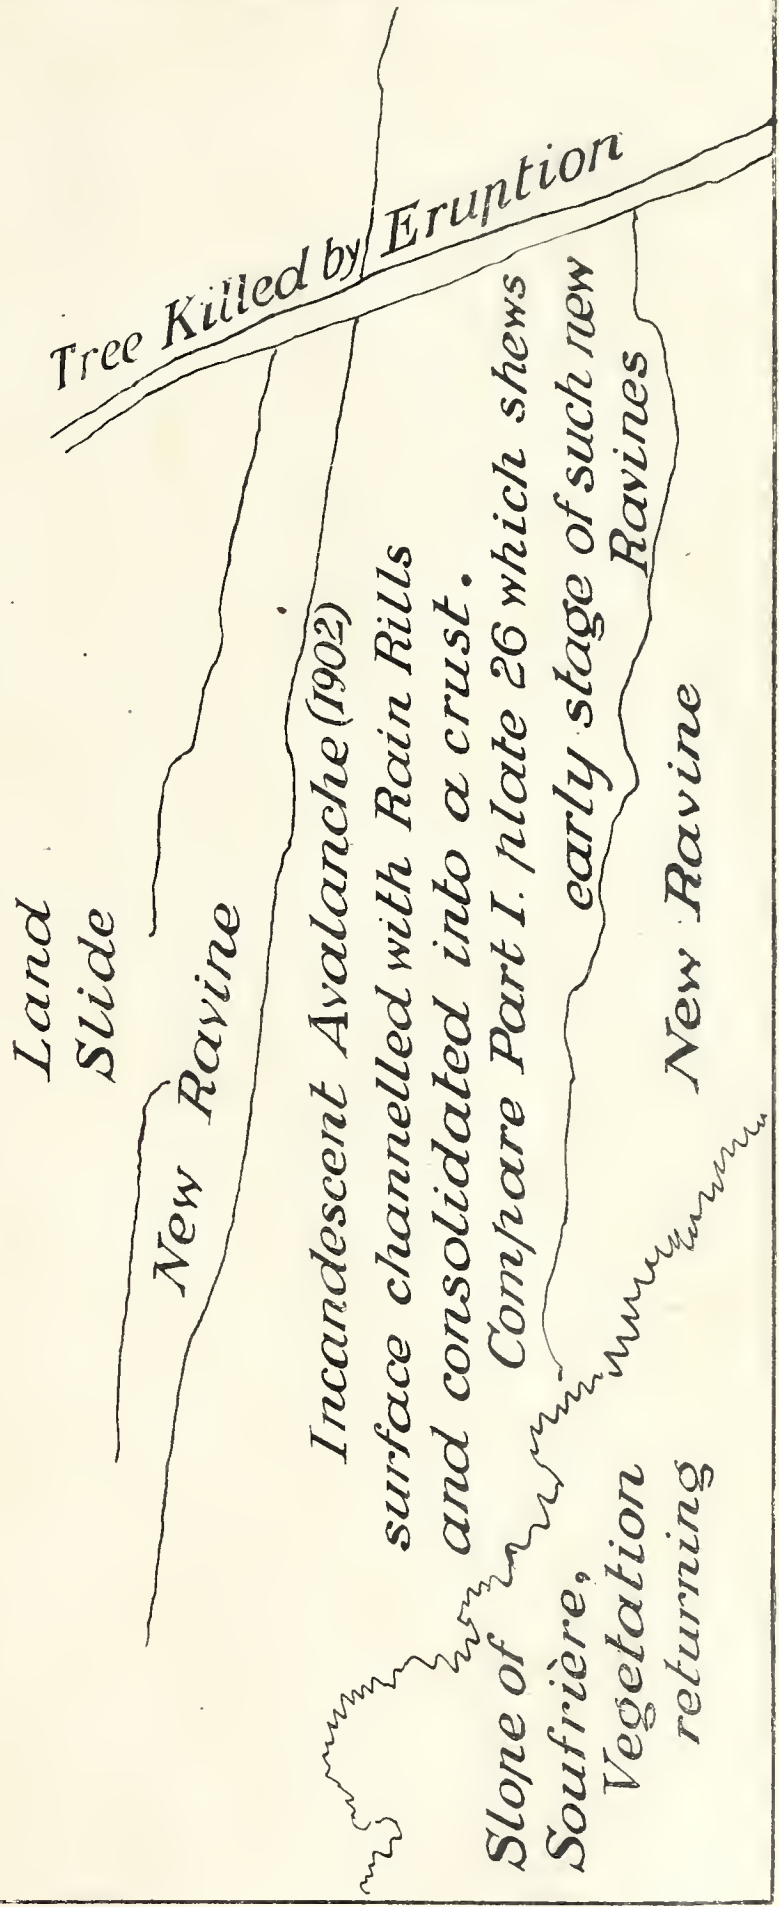 Land
Slide
Tree Killed by Eruption
New Ravine
Incandescent Avalanche (1902)
surface channelled with Rain Rills
and consolidated into a crust.
Compare Part I. plate 26 which shews
early stage of such new
Ravines
New Ravine
Slope of
Soufrière,
Vegetation
returning